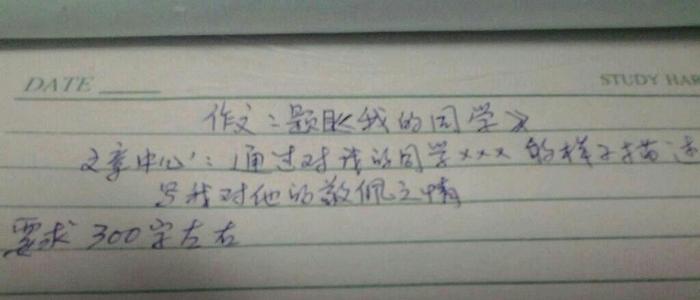 DATE
STUDY HAR
作文:题目《我的同学》
文章中心:通过对我的同学xxx的样子描述
写我对他的敬佩之情
要求 300字左右